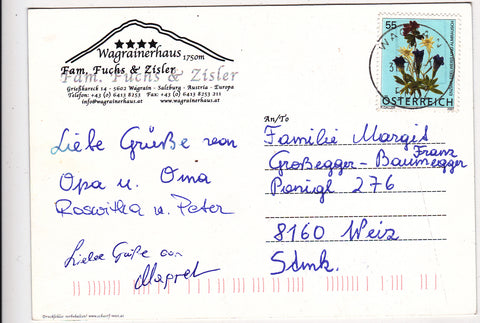 Wagrainerhaus 1750m
Fam. Fuchs & Zisler
Fam. Fuchs & Zisler
Grießkareck 14 - 5602 Wagrain - Salzburg - Austria - Europa
Telefon: +43 (0) 6413 8253 Fax: +43 (0) 6413 8253 211
info@wagrainerhaus.at www.wagrainerhaus.at
Liebe Grüße von
Opa u. Oma
Roswitha u. Peter
Liebe Grüße von
Magret
55
ÖSTERREICH
An/To
Familie Margit
Franz
Großegger-Baumegger
Ponigl 276
8160 Weiz
Stmk.